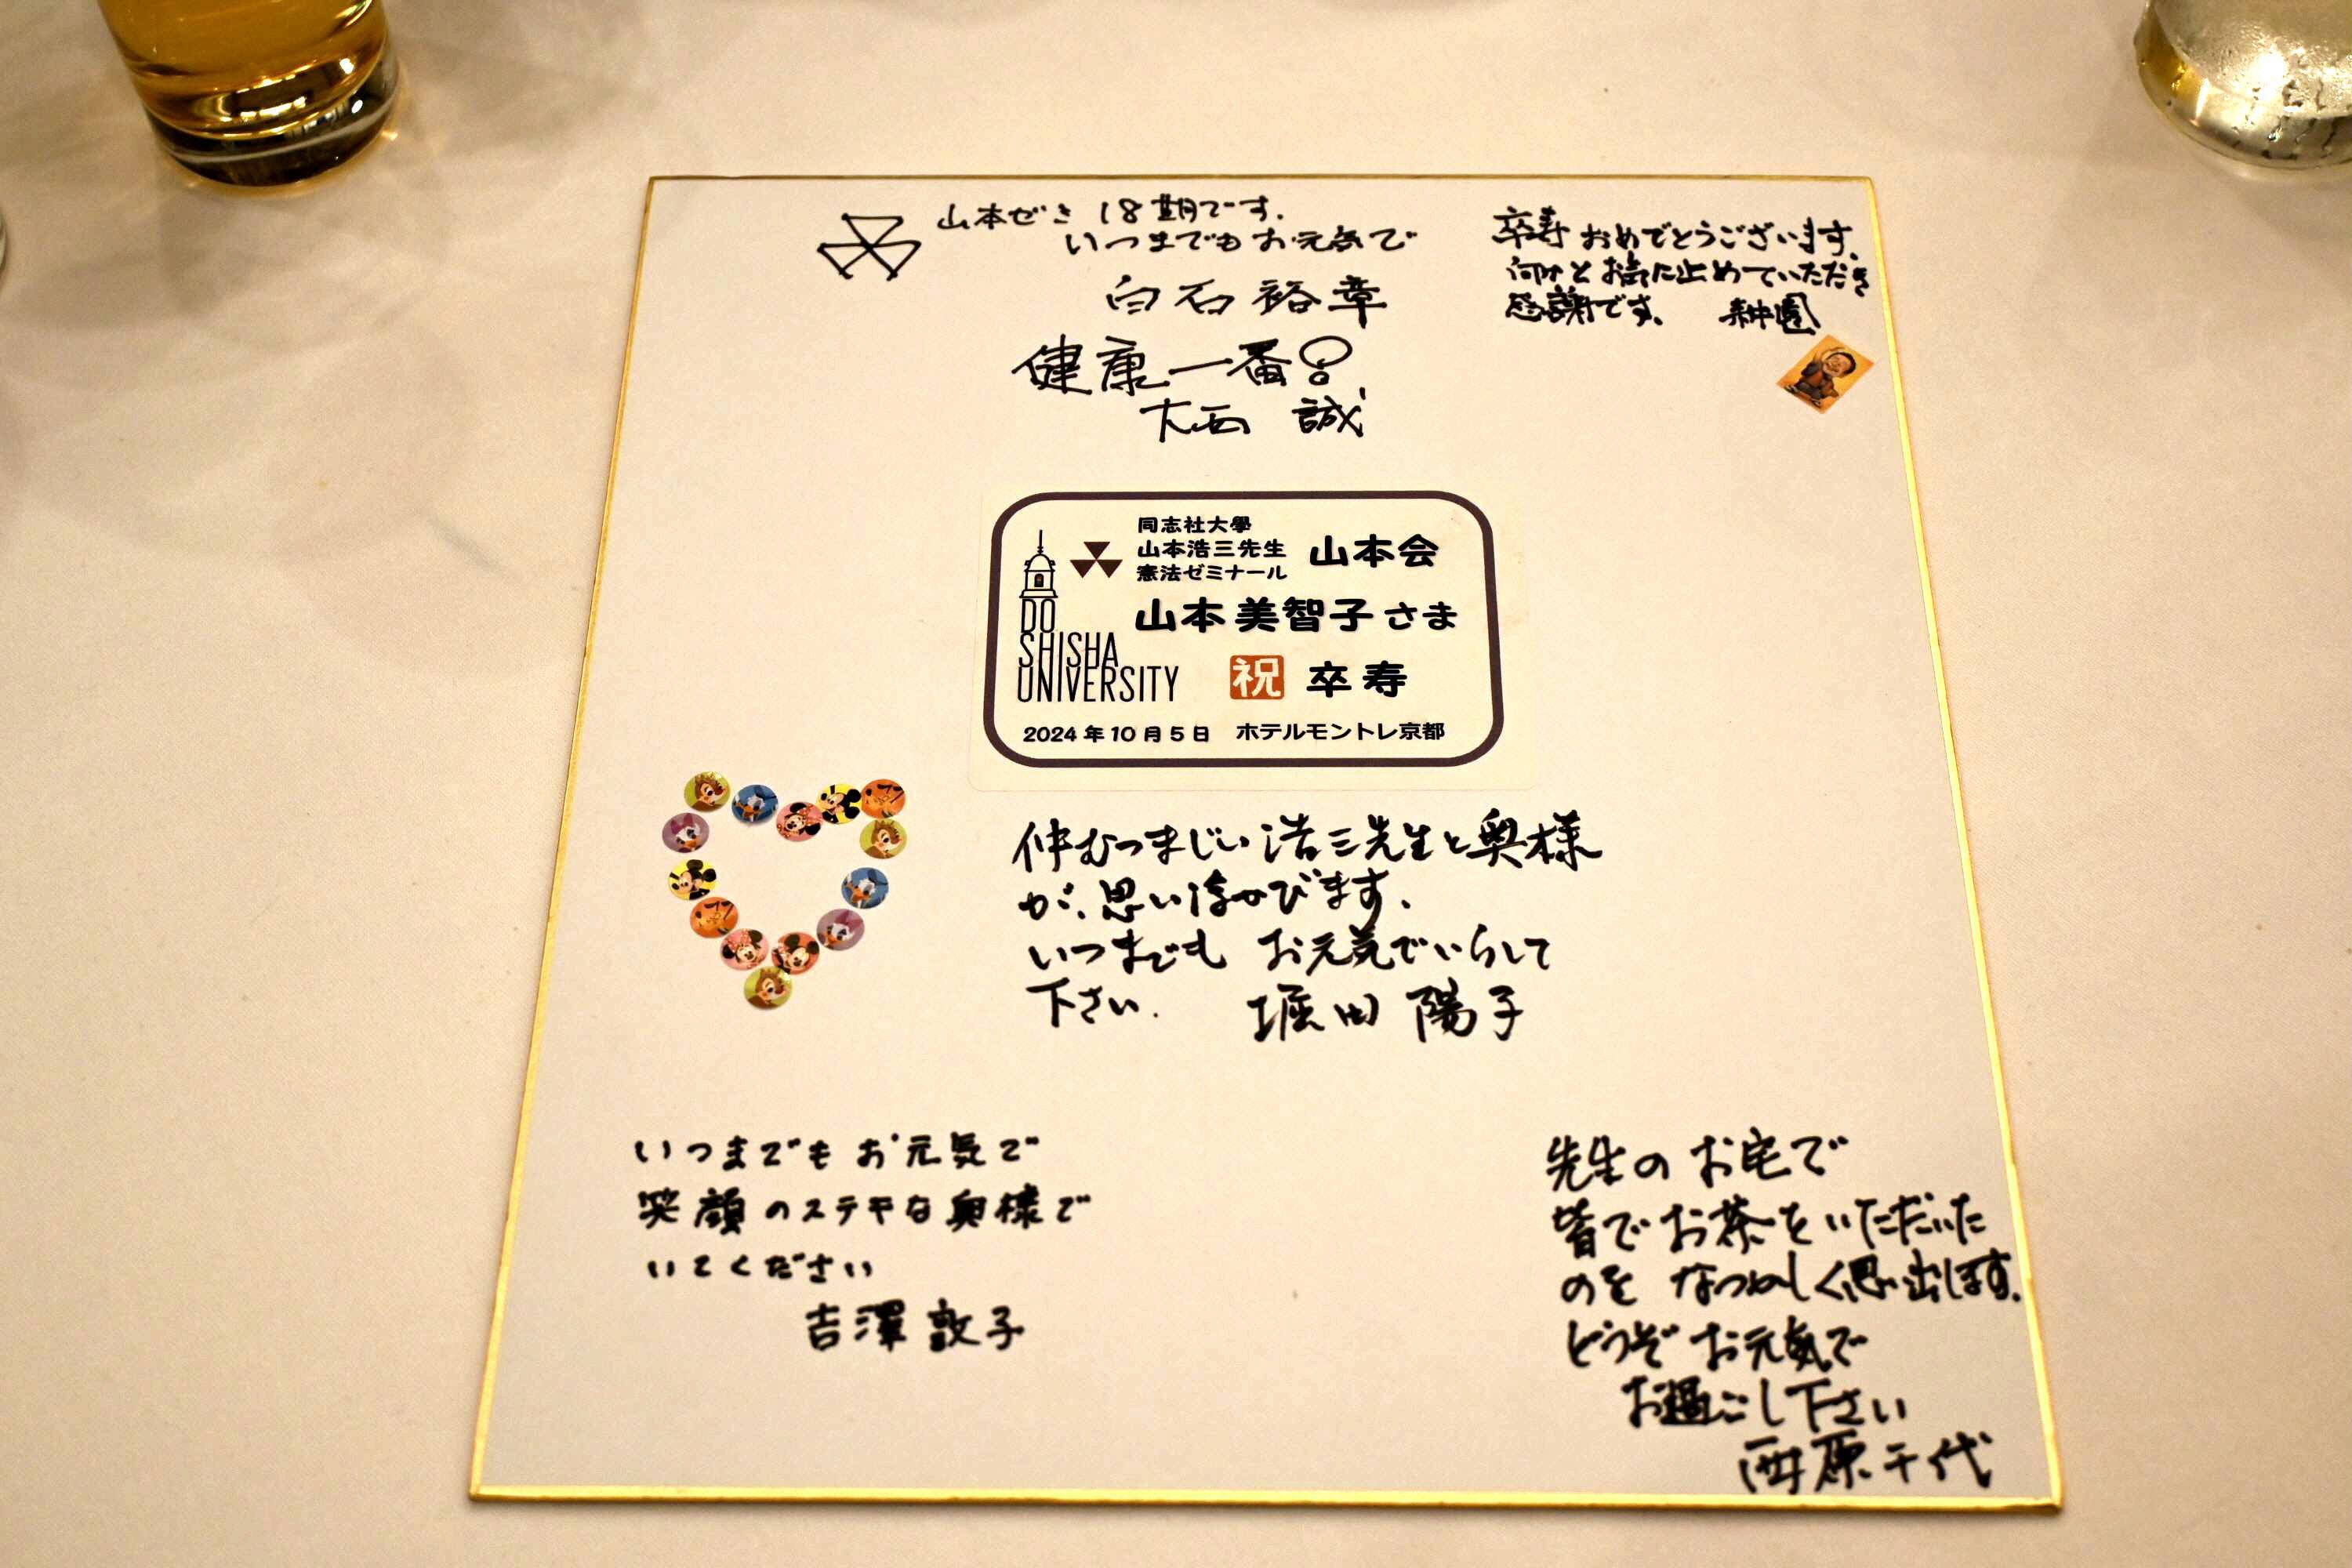 山本ゼミ 18期です.
いつまでもお元気で
白石裕章
健康一番!
大西 誠
卒寿おめでとうございます.
何かとお気に止めていただき
感謝です.
同志社大學
山本浩三先生
憲法ゼミナール
山本会
山本美智子さま
DO
SHISHA
UNIVERSITY
祝 卒寿
2024年10月5日 ホテルモントレ京都
仲むつまじい浩三先生と奥様
が、思い浮かびます.
いつまでも お元気でいらして
下さい. 堀田 陽子
いつまでもお元気で
笑顔のステキな奥様で
いてください
吉澤敦子
先生のお宅で
皆でお茶をいただいた
のを なつかしく思い出します.
どうぞお元気で
お過ごし下さい
西原千代